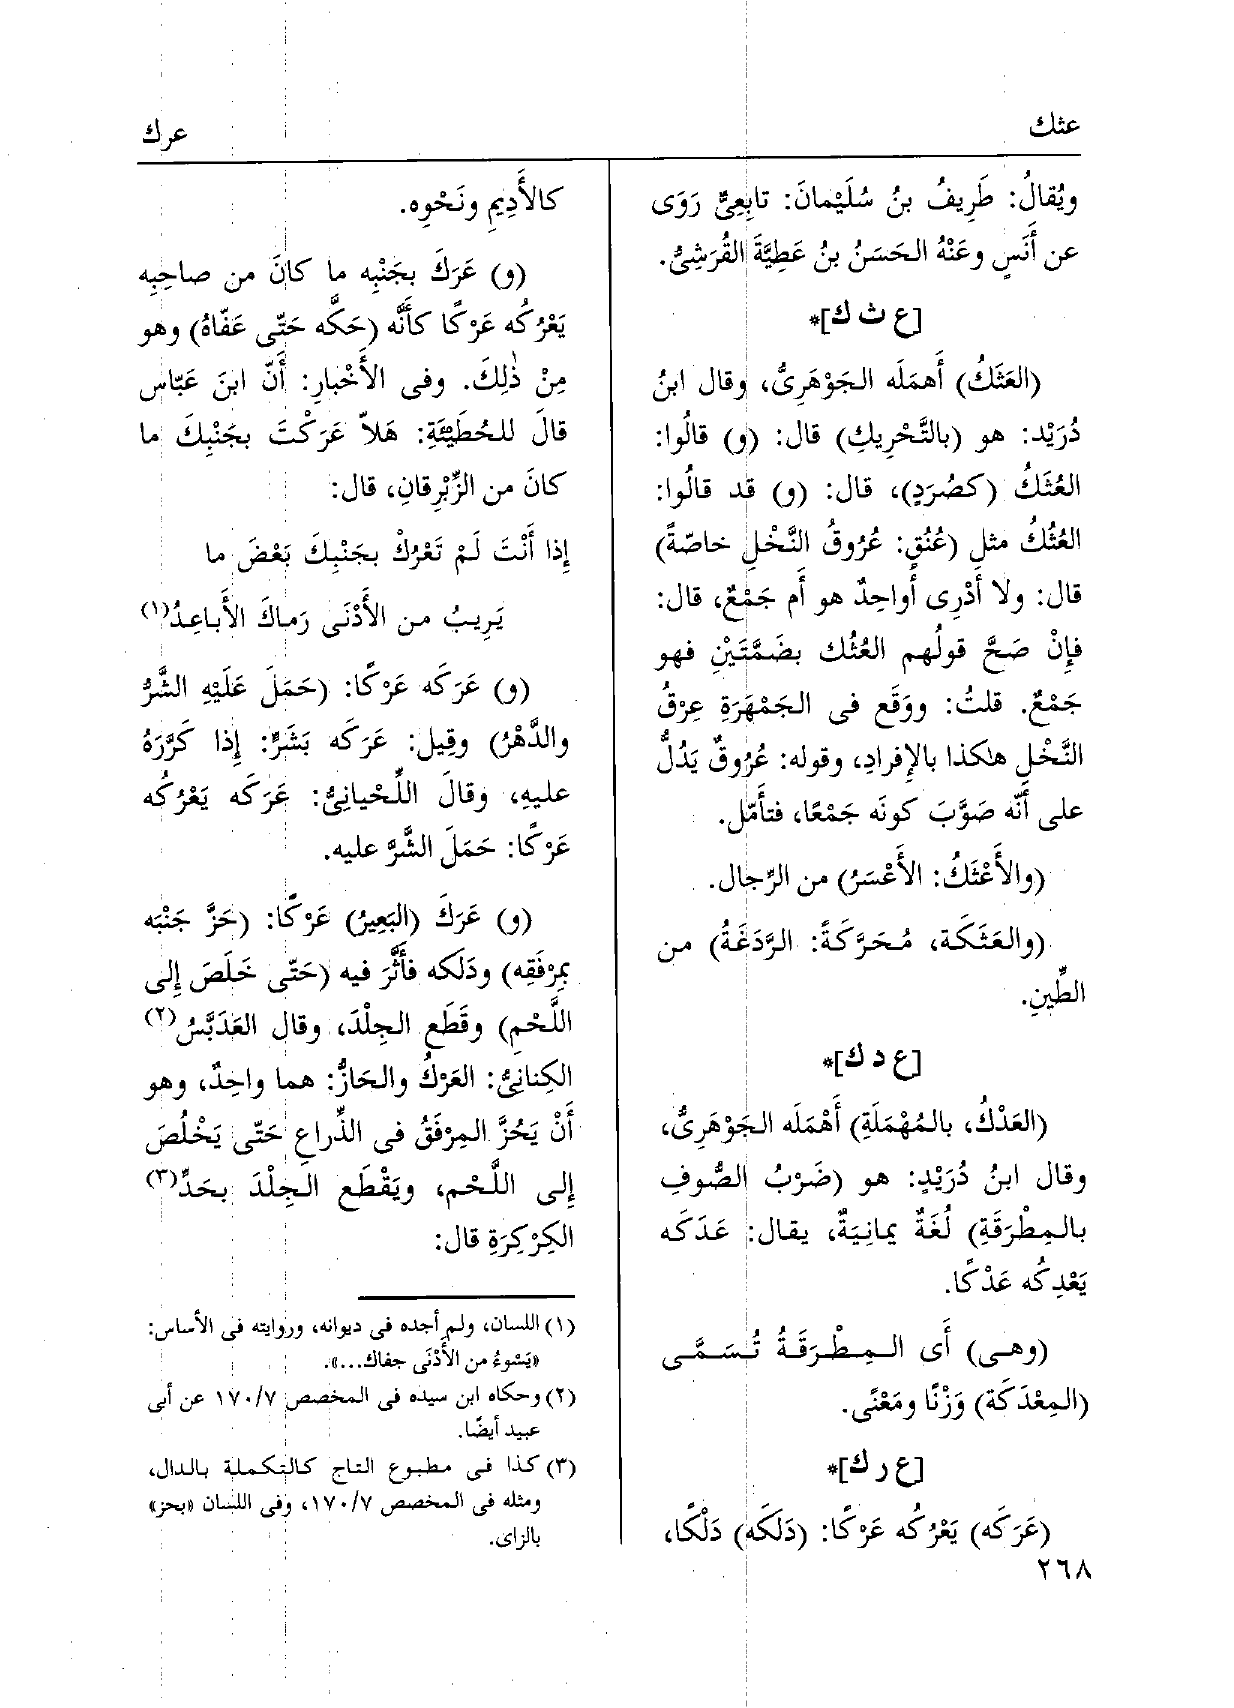 عثك
عرك
ويُقالُ: طَرِيفُ بنُ سُلَيْمانَ: تابِعِىٌّ رَوَى
عن أَنَسٍ وعَنْهُ الحَسَنُ بنُ عَطِيَّةَ القُرَشِىُّ.
[ع ث ك]*
(العَثَكُ) أَهمَلَه الجَوْهَرِىُّ، وقال ابنُ
دُرَيْد: هو (بالتَّحْرِيكِ) قال: (و) قالُوا:
العُثَكُ (كصُرَدٍ)، قال: (و) قد قالُوا:
العُثُكُ مثلِ (عُنُقٍ: عُرُوقُ النَّخْلِ خاصّةً)
قال: ولا أَدْرِى أَواحِدٌ هو أَم جَمْعٌ، قال:
فإِنْ صَحَّ قولُهم العُثُك بضَمَّتَيْنِ فهو
جَمْعٌ. قلتُ: ووَقَع فى الجَمْهَرَةِ عِرْقُ
النَّخْلِ هٰكذا بالإِفرادِ، وقوله: عُرُوقٌ يَدُلُّ
على أَنّه صَوَّبَ كونَه جَمْعًا، فتأَمّل.
(والأَعْثَكُ: الأَعْسَرُ) من الرِّجال.
(والعَثَكَة، مُحَرَّكَةً: الرَّدَغَةُ) من
الطِّينِ.
[ع د ك]*
(العَدْكُ، بالمُهْمَلَةِ) أَهْمَلَه الجَوْهَرِىُّ،
وقال ابنُ دُرَيْدٍ: هو (ضَرْبُ الصُّوفِ
بالمِطْرَقَةِ) لُغَةٌ يمانِيَةٌ، يقال: عَدَكَه
يَعْدِكُه عَدْكًا.
(وهى) أَى المِطْرَقَةُ تُسَمَّى
(المِعْدَكَة) وَزْنًا ومَعْنًى.
[ع ر ك]*
(عَرَكَه) يَعْرُكُه عَرْكًا: (دَلَكَه) دَلْكًا،
كالأَدِيمِ ونَحْوِه.
(و) عَرَكَ بجَنْبِه ما كانَ من صاحِبِه
يَعْرُكُه عَرْكًا كأَنَّه (حَكَّه حَتّى عَفّاهُ) وهو
مِنْ ذٰلِكَ. وفى الأَخْبارِ: أَنّ ابنَ عَبّاس
قالَ للحُطَيْئَةِ: هَلاّ عَرَكْتَ بجَنْبِكَ ما
كانَ من الزِّبْرِقانِ، قال:
إِذا أَنْتَ لَمْ تَعْرُكْ بجَنْبِكَ بَعْضَ ما
يَرِيبُ من الأَدْنَى رَماكَ الأَباعِدُ(١)
(و) عَرَكَه عَرْكًا: (حَمَلَ عَلَيْهِ الشَّرُّ
والدَّهْرُ) وقِيل: عَرَكَه بَشَرٍّ: إِذا كَرَّرَهُ
عليهِ، وقالَ اللِّحْيانِىُّ: عَرَكَه يَعْرُكُه
عَرْكًا: حَمَلَ الشَّرَّ عليه.
(و) عَرَكَ (البَعِيرُ) عَرْكًا: (حَزَّ جَنْبَه
بمِرْفَقِه) ودَلَكه فأَثَّرَ فيه (حَتّى خَلَصَ إِلى
اللَّحْمِ) وقَطَع الجِلْدَ، وقال العَدَبَّسُ(٢)
الكِنانِىُّ: العَرْكُ والحَازُّ: هما واحِدٌ، وهو
أَنْ يَحُزَّ المِرْفَقُ فى الذِّراعِ حَتّى يَخْلُصَ
إِلى اللَّحْمِ، ويَقْطَع الجِلْدَ بحَدِّ(٣)
الكِرْكِرَةِ قال:
(١) اللسان، ولم أجده فى ديوانه، وروايته فى الأساس:
«يَسُوءُ من الأَدْنَى جفاك...».
(٢) وحكاه ابن سيده فى المخصص ١٧٠/٧ عن أبى
عبيد أيضًا.
(٣) كذا فى مطبوع التاج كالتكملة بالدال،
ومثله فى المخصص ١٧٠/٧، وفى اللسان «بحز»
بالزاى.
٢٦٨